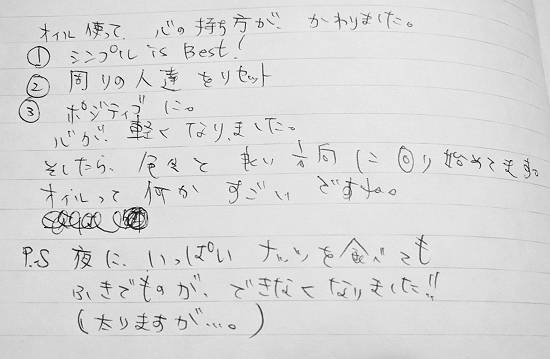 オイル使って、心の持ち方が、かわりました。
① シンプル is Best!
② 周りの人達をリセット
③ ポジティブに。
心が、軽くなりました。
そしたら、色々と良い方向に回り始めてます。
オイルって何かすごいですね。
P.S 夜に、いっぱいナッツを食べても
ふきでものが、できなくなりました!!
(太りますが…。)